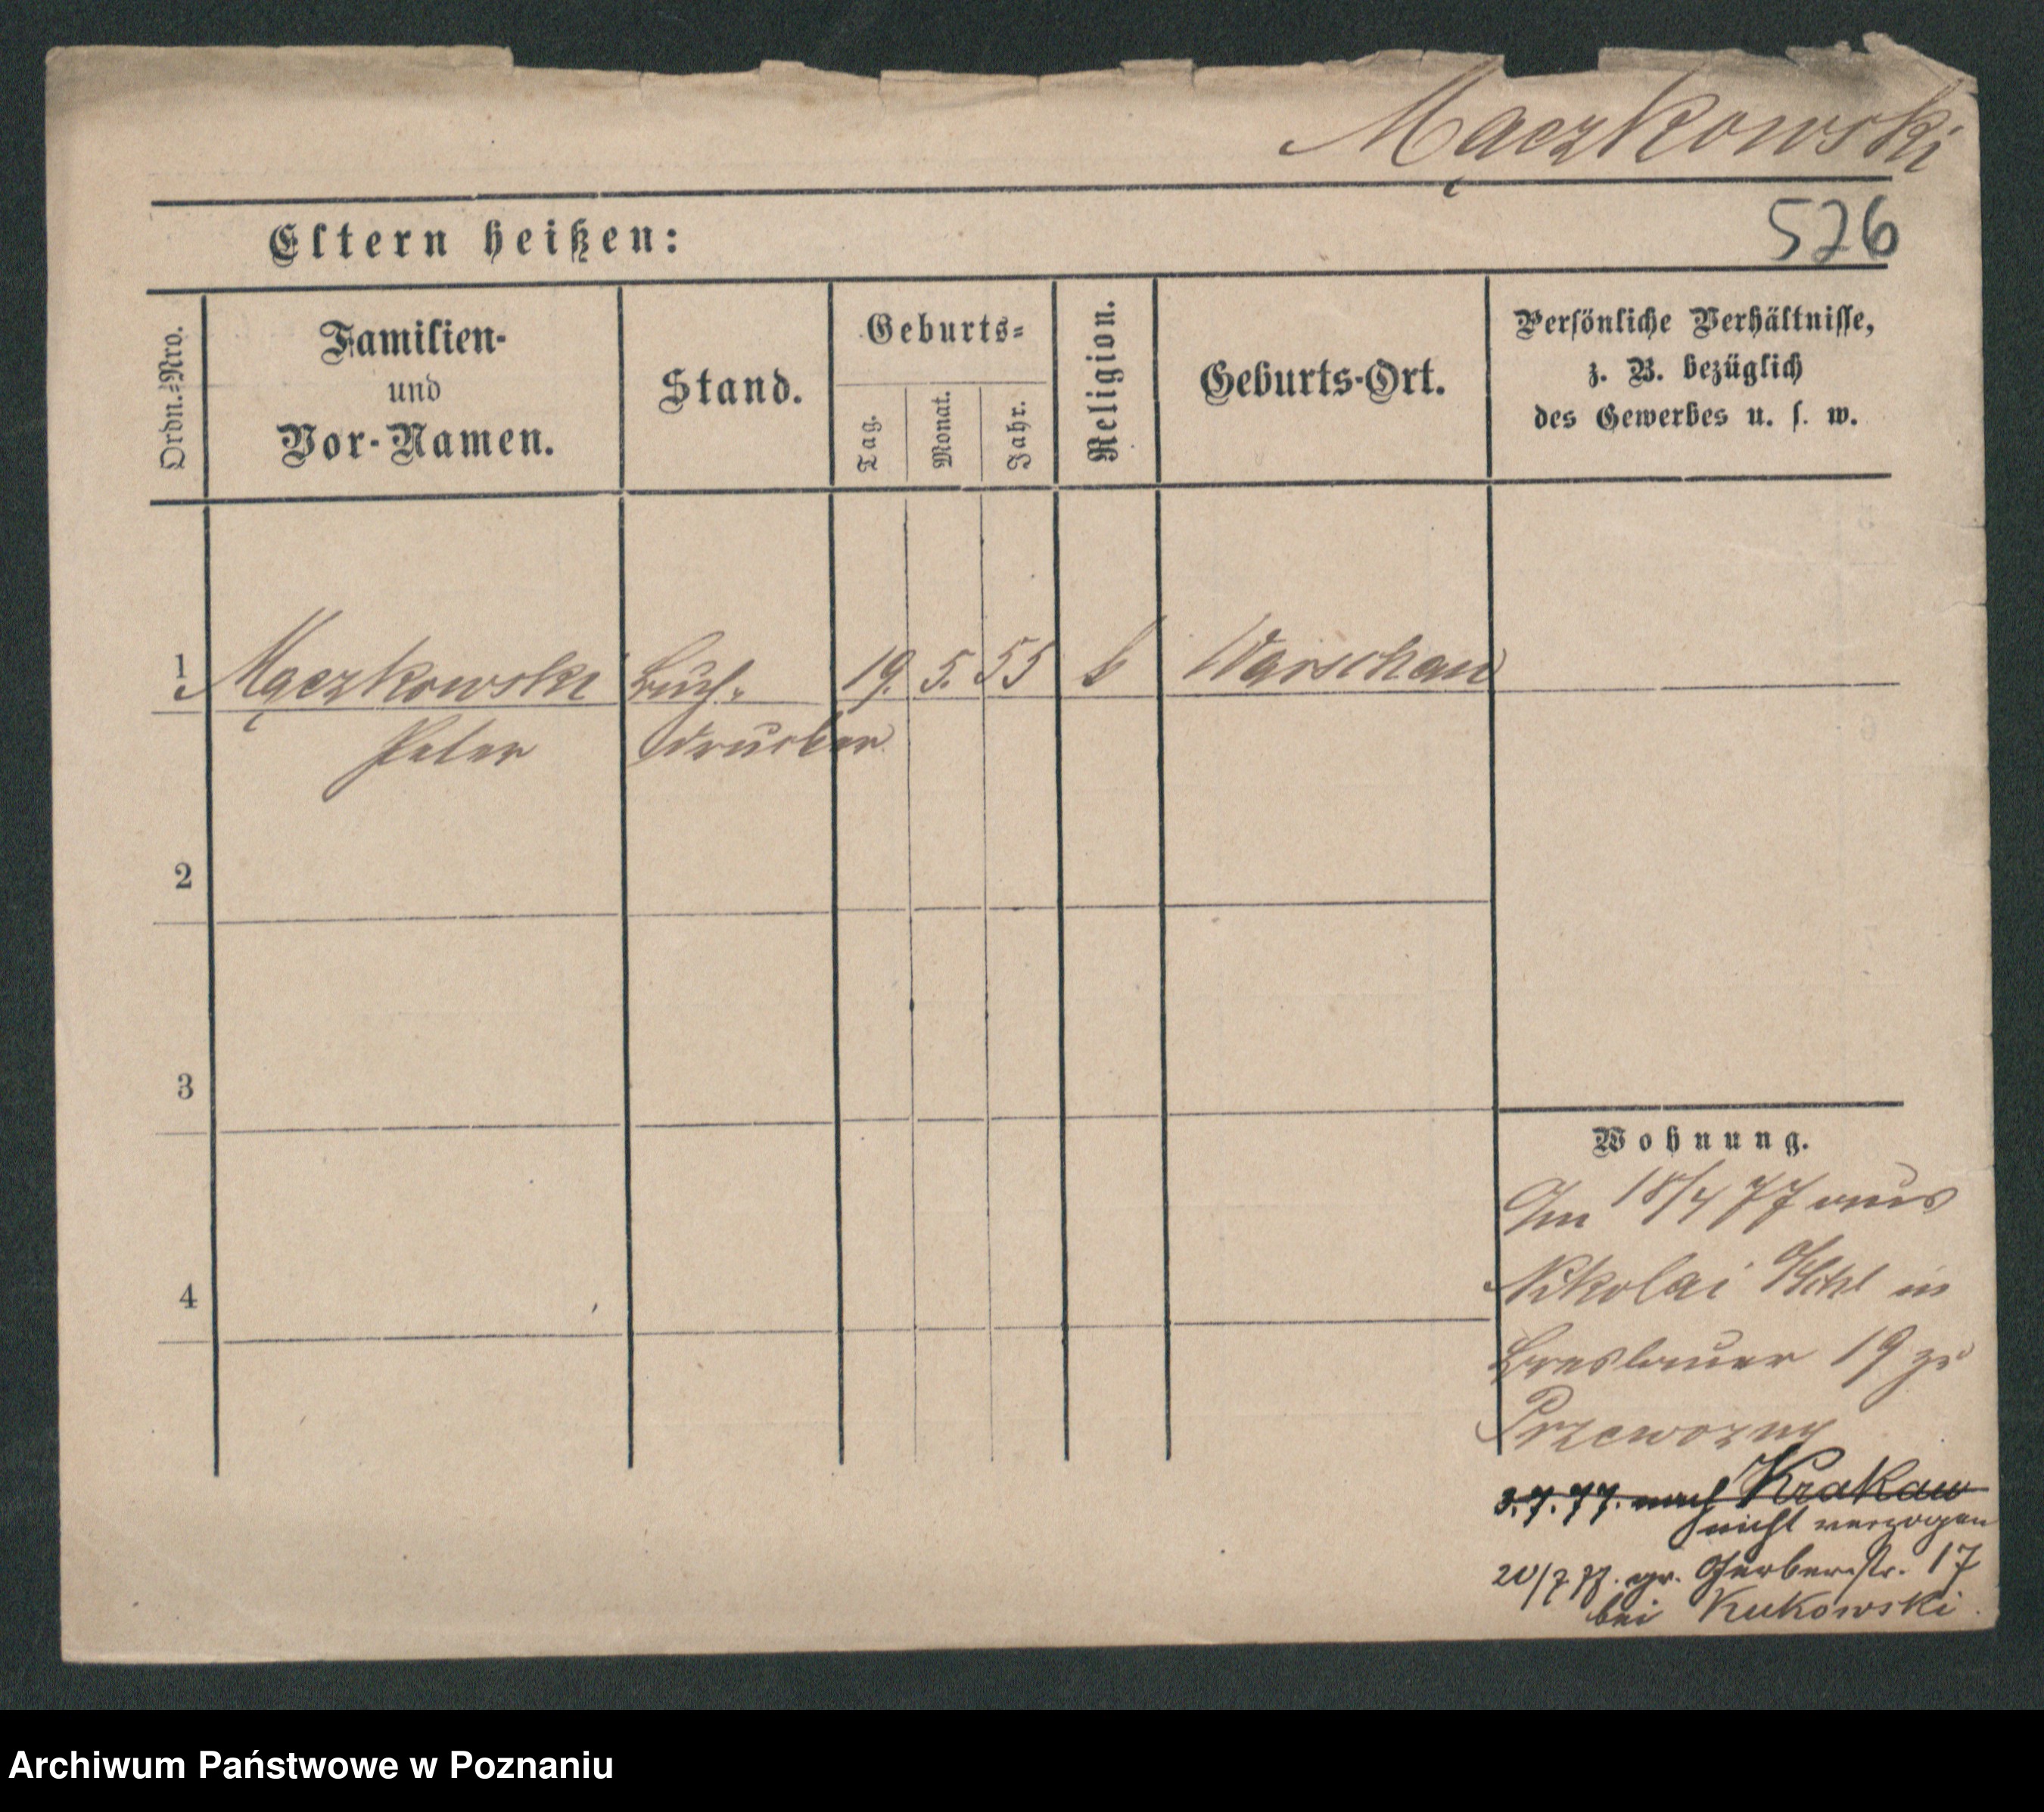 Mączkowski
526
Eltern heißen:
Ordn.=Nro.
Familien-
und
Vor-Namen.
Stand.
Geburts=
Tag.
Monat.
Jahr.
Religion.
Geburts-Ort.
Persönliche Verhältnisse,
z. B. bezüglich
des Gewerbes u. s. w.
1 Mączkowski Buch- 19. 5. 55 k Warschau
Peter drucker
2
3
4
Wohnung.
Am 18/4 77 aus
Nikolai in
Breslauer 19 zu
Przeworny
3.7.77. nach Krakau
nicht verzogen
20/7 77. gr. Gerberstr. 17
bei Kukowski
Archiwum Państwowe w Poznaniu